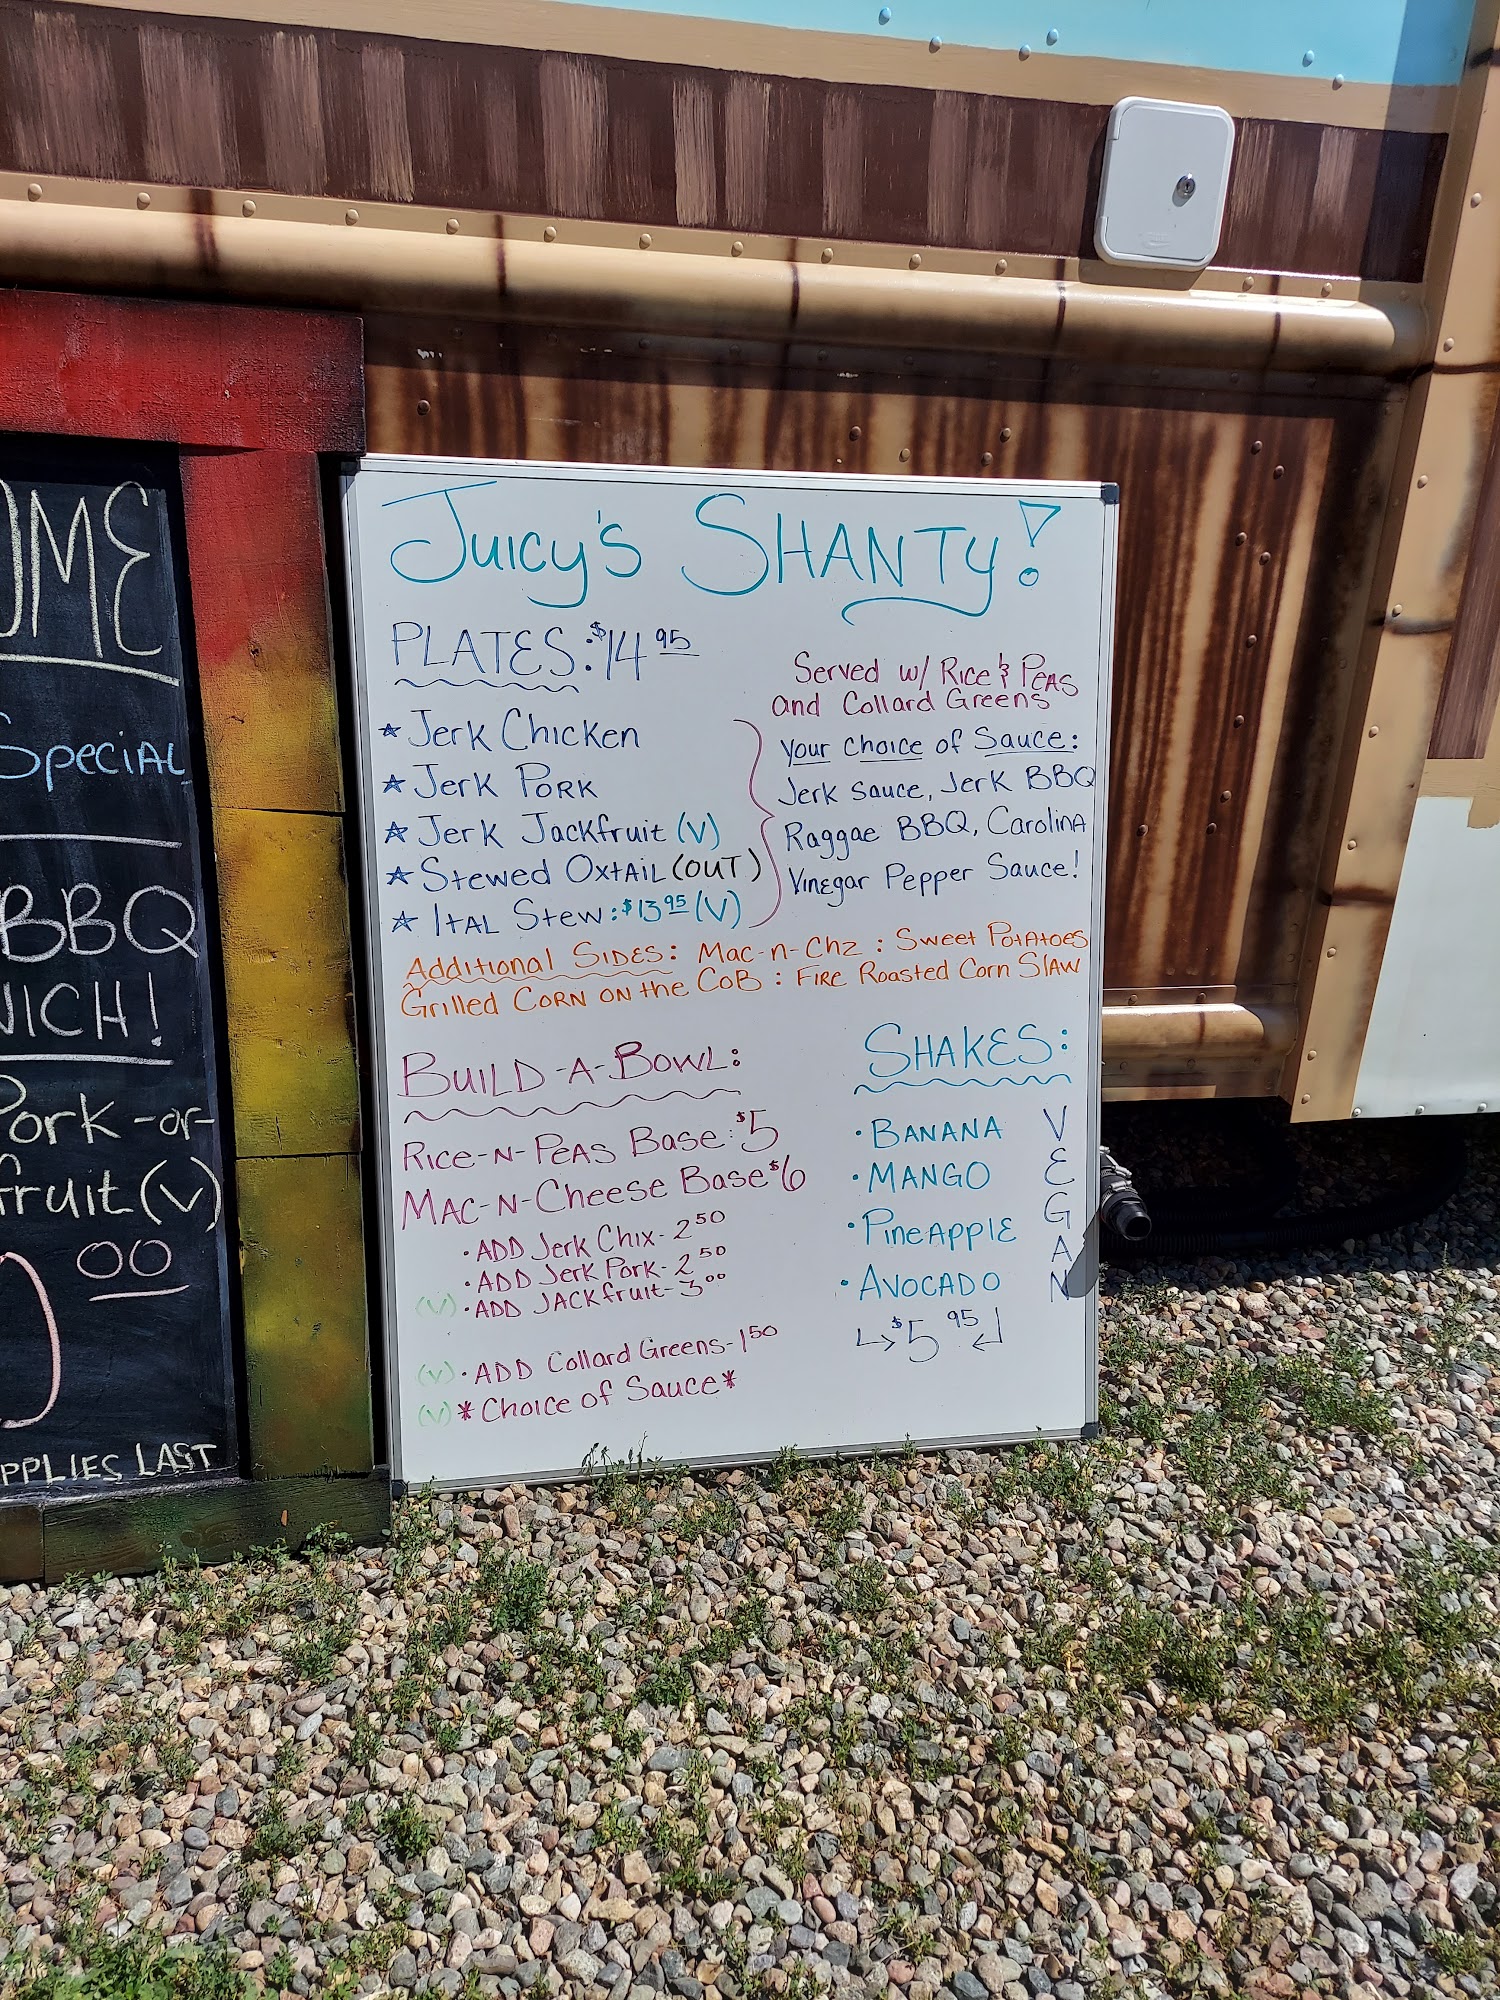 OME
Special
BBQ
WICH!
Pork -or-
fruit (v)
00
PPLIES LAST
Juicy's SHANTY!
PLATES: $14 95
Served w/ Rice & Peas
and Collard Greens
☆ Jerk Chicken
☆ Jerk Pork
☆ Jerk Jackfruit (V)
☆ Stewed Oxtail (OUT)
☆ Ital Stew: $13 95 (V)
Your choice of Sauce:
Jerk Sauce, Jerk BBQ
Raggae BBQ, Carolina
Vinegar Pepper Sauce!
Additional Sides: Mac-n-Chz : Sweet Potatoes
Grilled Corn on the Cob : Fire Roasted Corn Slaw
Build-A-Bowl:
Rice-N-Peas Base: $5
Mac-N-Cheese Base $6
• ADD Jerk Chix - 2 50
• ADD Jerk Pork - 2 50
(V) • ADD Jackfruit - 3 00
(V) • ADD Collard Greens - 1 50
(V) * Choice of Sauce *
SHAKES:
• BANANA
• MANGO
• Pineapple
• Avocado
VEGAN
$5 95